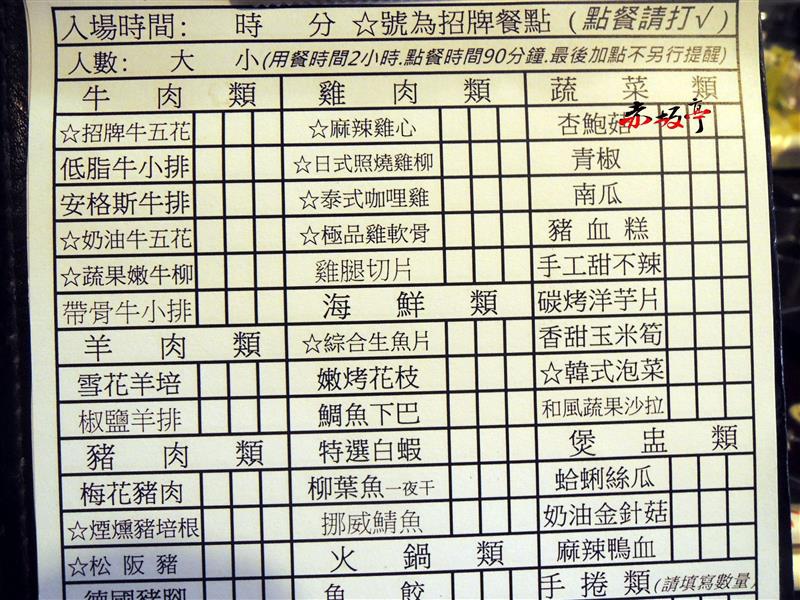 入場時間： 時 分 ☆號為招牌餐點（點餐請打√）
人數： 大 小(用餐時間2小時.點餐時間90分鐘.最後加點不另行提醒)
牛肉類 雞肉類 蔬菜類
☆招牌牛五花 ☆麻辣雞心 杏鮑菇
赤坂亭
低脂牛小排 ☆日式照燒雞柳 青椒
安格斯牛排 ☆泰式咖哩雞 南瓜
☆奶油牛五花 ☆極品雞軟骨 豬血糕
☆蔬果嫩牛柳 雞腿切片 手工甜不辣
帶骨牛小排 海鮮類 碳烤洋芋片
羊肉類 ☆綜合生魚片 香甜玉米筍
雪花羊培 嫩烤花枝 ☆韓式泡菜
椒鹽羊排 鯛魚下巴 和風蔬果沙拉
豬肉類 特選白蝦 煲盅類
梅花豬肉 柳葉魚一夜干 蛤蜊絲瓜
☆煙燻豬培根 挪威鯖魚 奶油金針菇
☆松阪豬 火鍋類 麻辣鴨血
德國豬腳 魚餃 手捲類(請填寫數量)